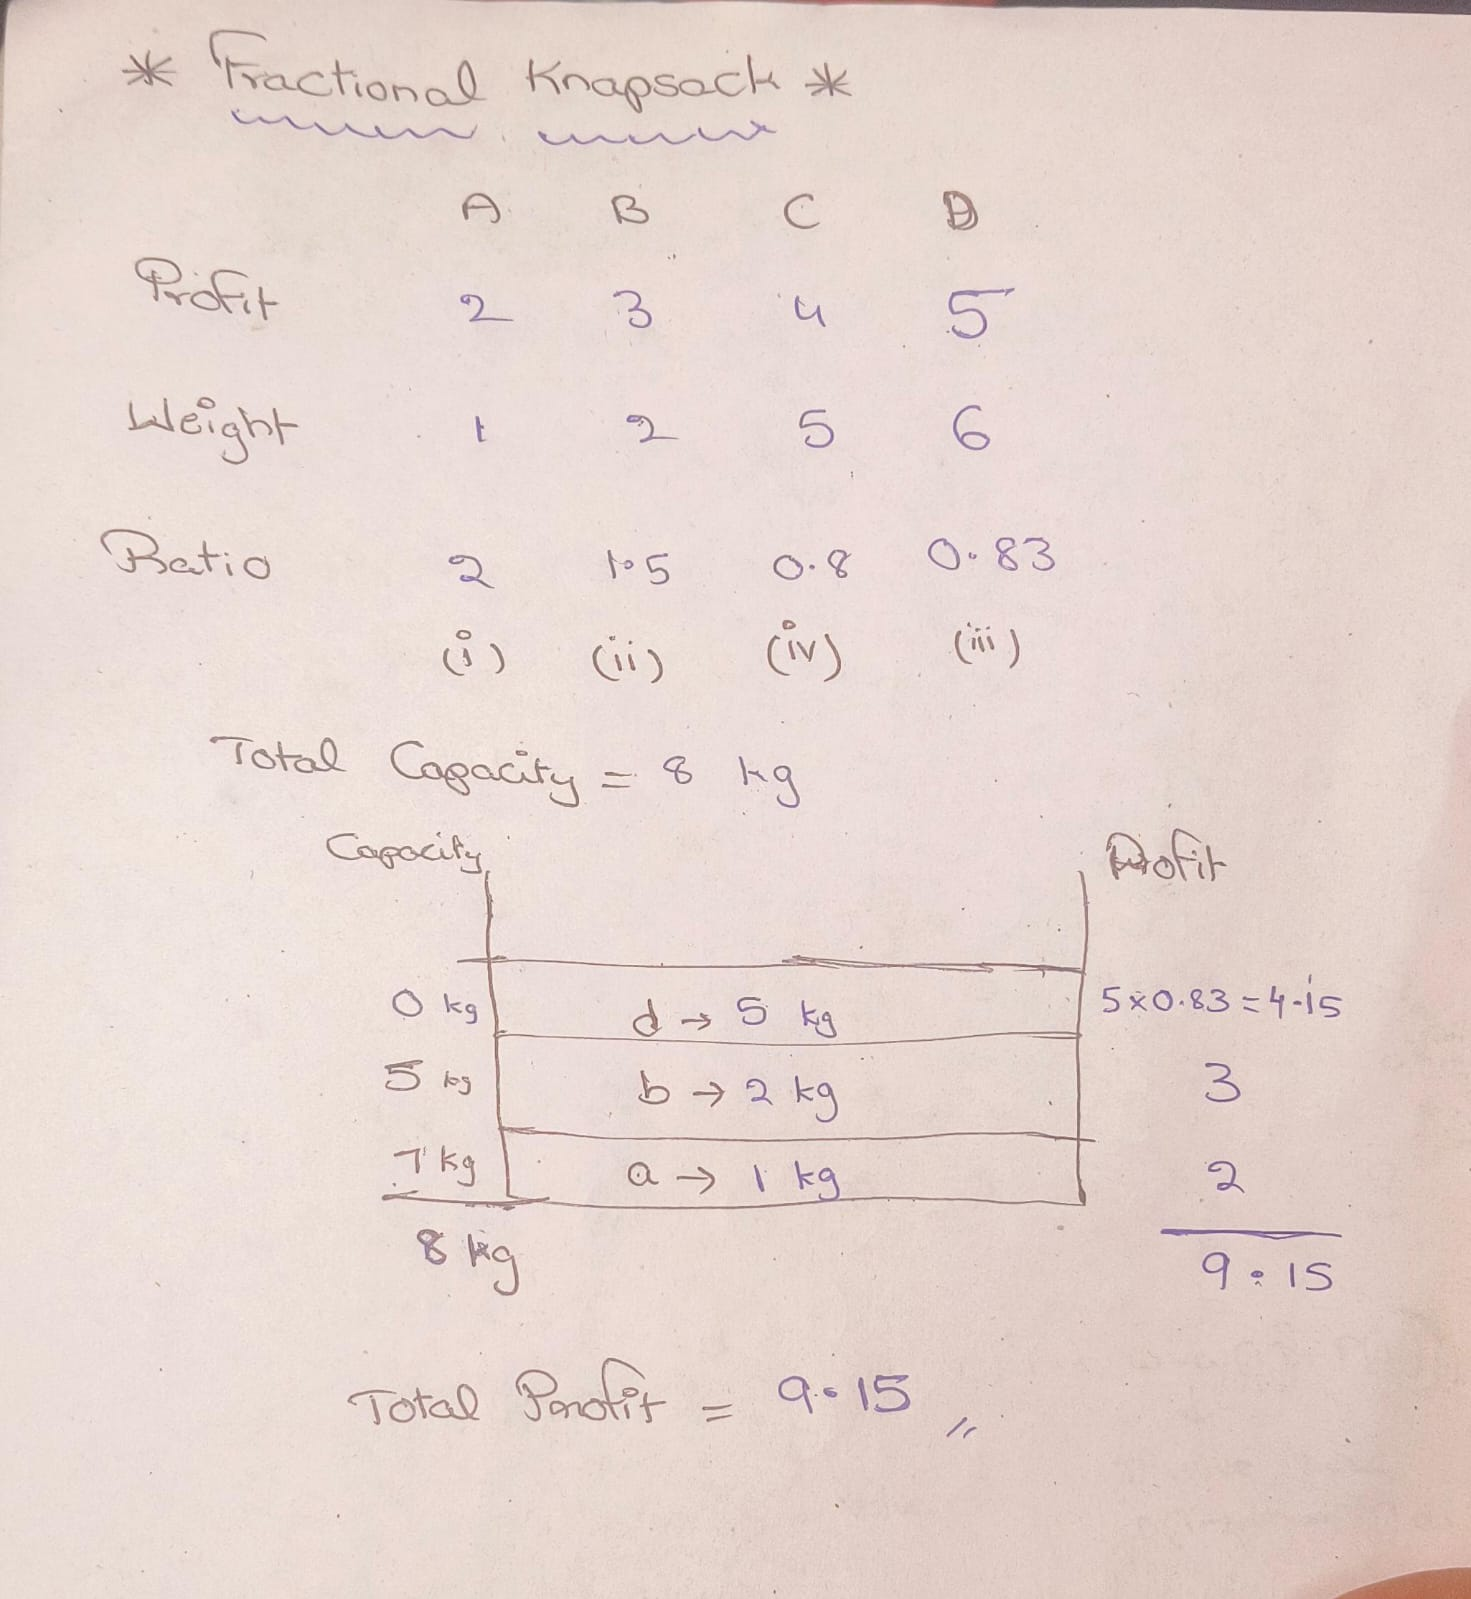 * Fractional Knapsack *
A B C D
Profit 2 3 4 5
Weight 1 2 5 6
Ratio 2 1.5 0.8 0.83
(i) (ii) (iv) (iii)
Total Capacity = 8 kg
Capacity Profit
0 kg d → 5 kg 5x0.83=4.15
5 kg b → 2 kg 3
7 kg a → 1 kg 2
8 kg 9.15
Total Profit = 9.15 //